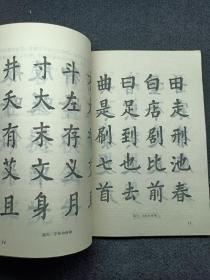 田走刑池春
白店剧比前
足到也去
是七首
斗左存义月
寸大末文身
井夭有艾且